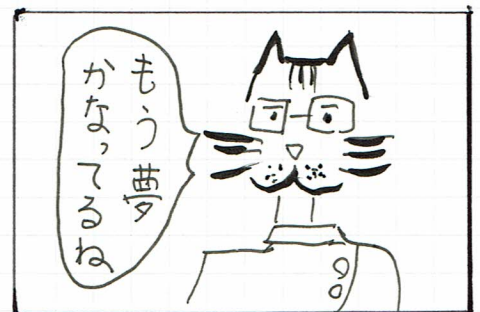 もう夢
かなってるね